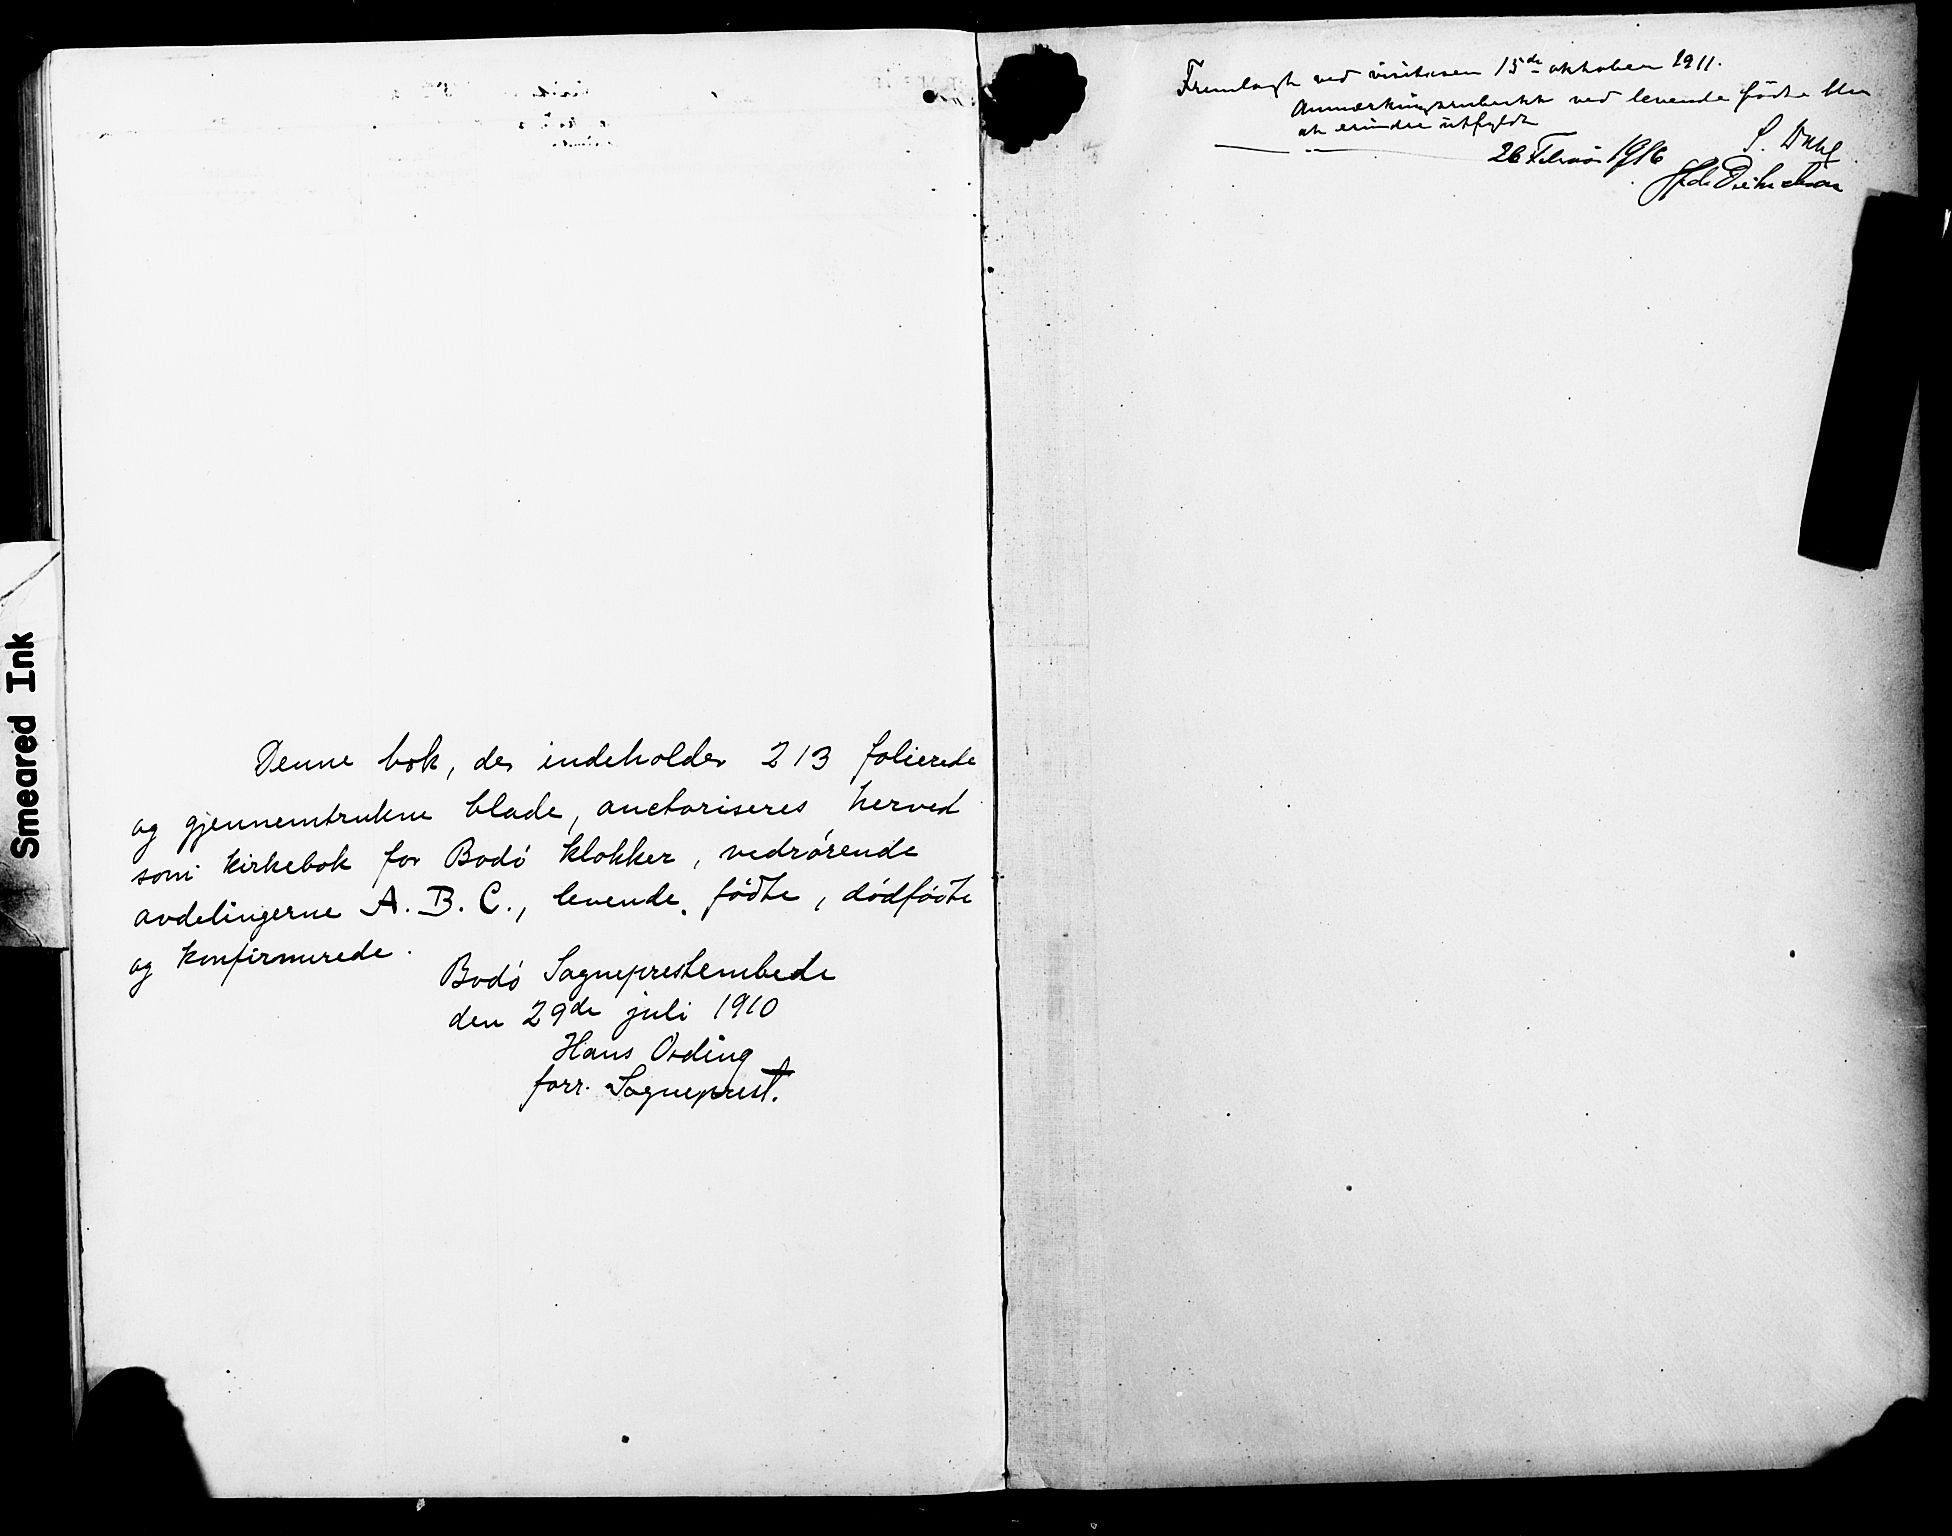 Smeared Ink
Denne bok, der indeholder 213 folierede
og gjennemtrukne blade, auctoriseres herved
som kirkebok for Bodó klokker, vedrórende
avdelingerne A. B. C., levende fódte, dódfódte
og konfirmerede.
Bodó Sogneprestembede
den 29de juli 1910
Hans Ording
forr. Sogneprest.
Fremlagt ved visitasen 15de oktober 1911.
Anmerkningsrubrikk ved levende fódte blir
at mindre utfyldt
26 Februar 1916